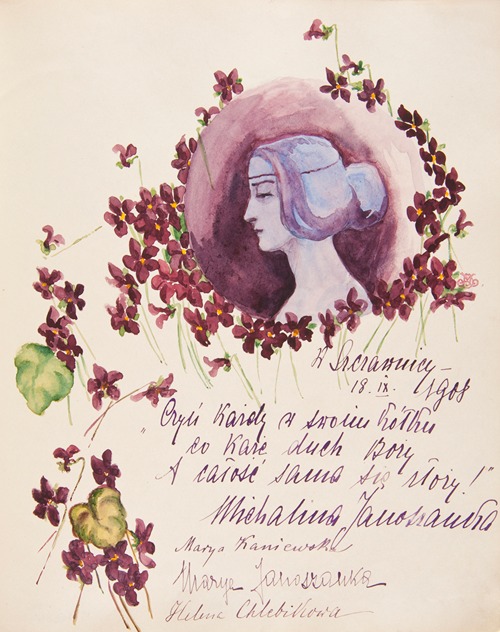 W Szczawnicy –
18. IX. 1908
"Czyń każdy w swoim kółku
co każe duch Boży
A całość sama się złoży!"
Michalina Janoszanka
Marya Kaniewska
Marya Janoszanka
Helena Chlebikowa